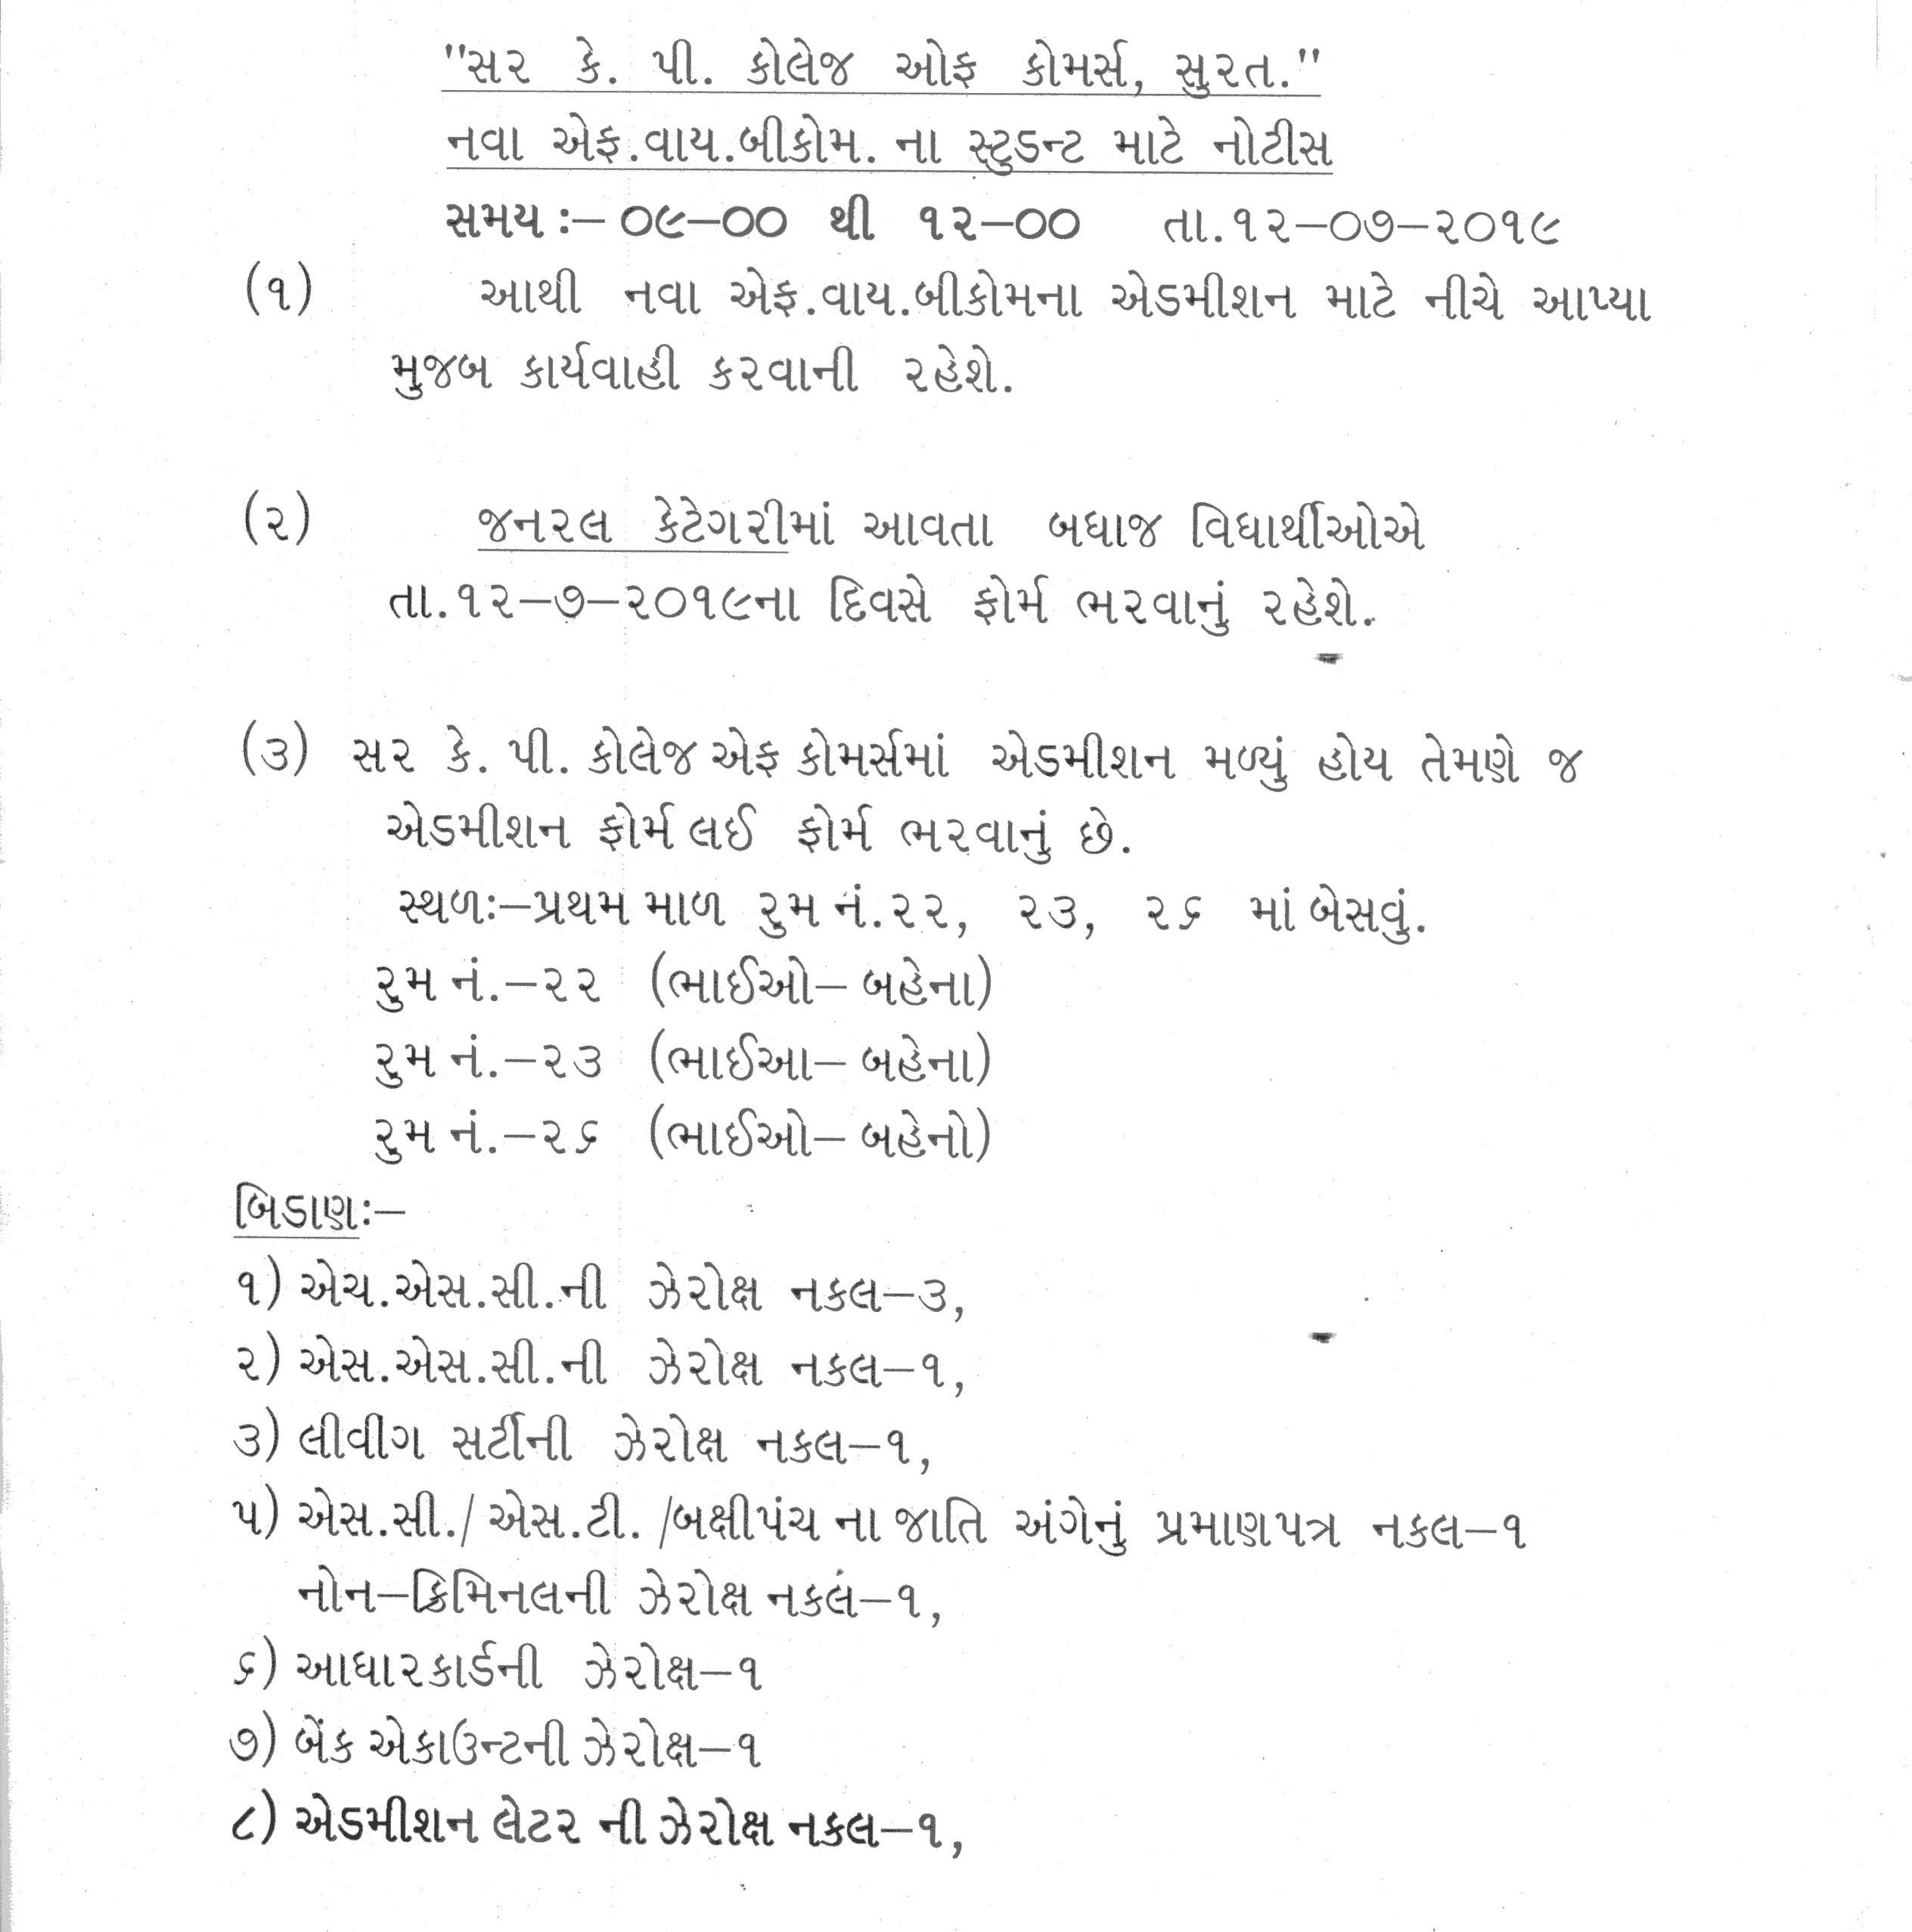 "સર કે. પી. કોલેજ ઓફ કોમર્સ, સુરત."
નવા એફ.વાય.બીકોમ. ના સ્ટુડન્ટ માટે નોટીસ
સમય :– ૦૯–૦૦ થી ૧૨–૦૦ તા.૧૨–૦૭–૨૦૧૯
(૧) આથી નવા એફ.વાય.બીકોમના એડમીશન માટે નીચે આપ્યા
મુજબ કાર્યવાહી કરવાની રહેશે.
(૨) જનરલ કેટેગરીમાં આવતા બધાજ વિધાર્થીઓએ
તા.૧૨–૭–૨૦૧૯ના દિવસે ફોર્મ ભરવાનું રહેશે.
(૩) સર કે. પી. કોલેજ એફ કોમર્સમાં એડમીશન મળ્યું હોય તેમણે જ
એડમીશન ફોર્મ લઈ ફોર્મ ભરવાનું છે.
સ્થળઃ–પ્રથમ માળ રુમ નં.૨૨, ૨૩, ૨૬ માં બેસવું.
રુમ નં.–૨૨ (ભાઈઓ– બહેના)
રુમ નં.–૨૩ (ભાઈઆ– બહેના)
રુમ નં.–૨૬ (ભાઈઓ– બહેનો)
બિડાણઃ–
૧) એચ.એસ.સી.ની ઝેરોક્ષ નકલ–૩,
૨) એસ.એસ.સી.ની ઝેરોક્ષ નકલ–૧,
૩) લીવીગ સર્ટીની ઝેરોક્ષ નકલ–૧,
૫) એસ.સી./ એસ.ટી. /બક્ષીપંચ ના જાતિ અંગેનું પ્રમાણપત્ર નકલ–૧
નોન–ક્રિમિનલની ઝેરોક્ષ નકલ–૧,
૬) આધારકાર્ડની ઝેરોક્ષ–૧
૭) બેંક એકાઉન્ટની ઝેરોક્ષ–૧
૮) એડમીશન લેટર ની ઝેરોક્ષ નકલ–૧,